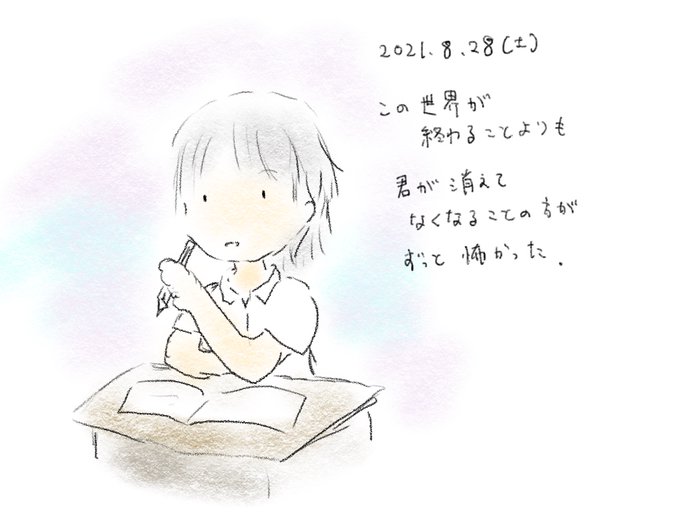 2021.8.28(土)
この世界が
終わることよりも
君が消えて
なくなることの方が
ずっと怖かった.